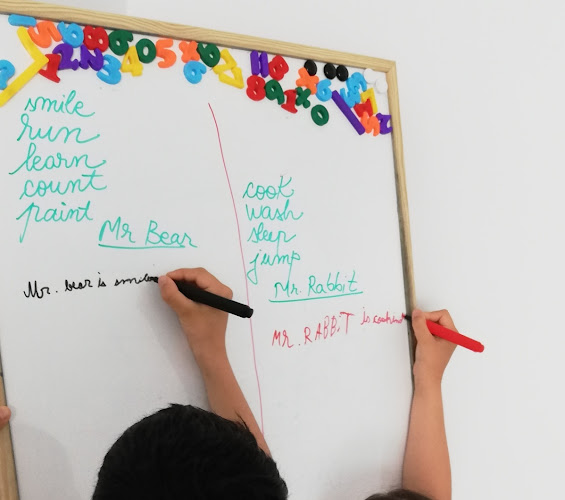 smile
run
learn
count
paint
Mr Bear
Mr. bear is
cook
wash
sleep
jump
Mr. Rabbit
MR. RABBIT is